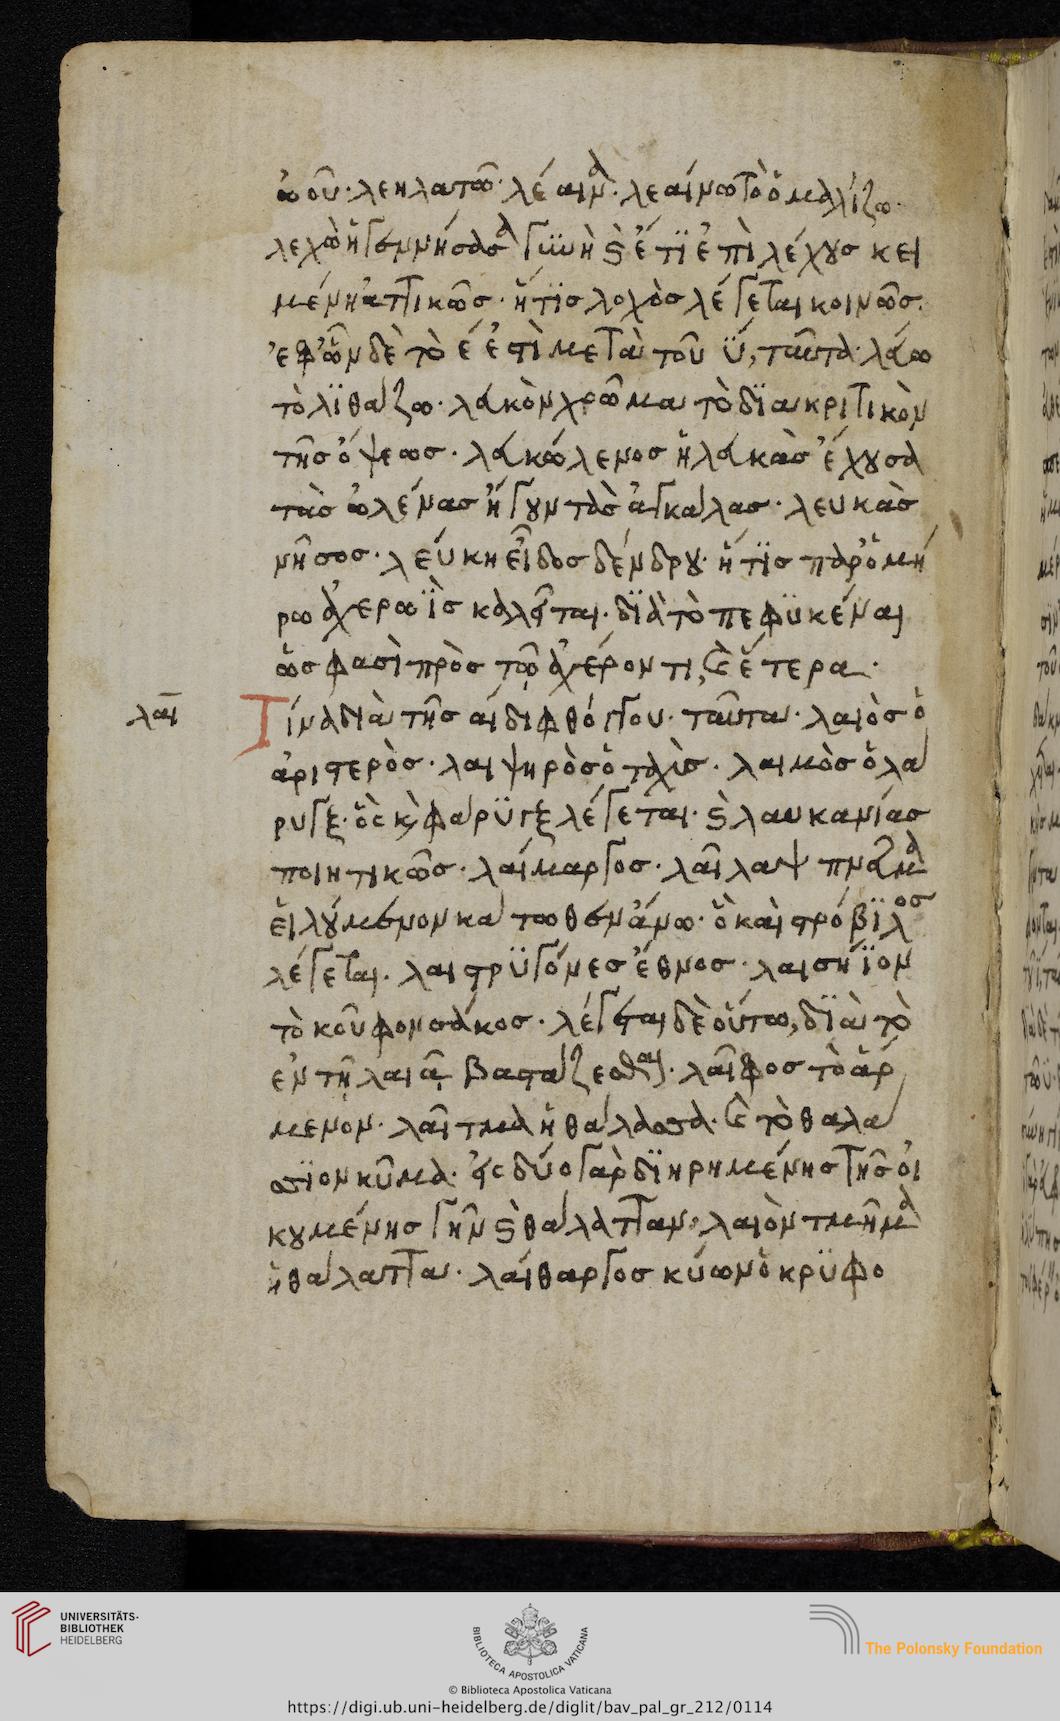 ὠοῦ· λεηλατῶ· λέαιμα· λεαίνω τὸ ὁμαλίζω·
λεχὼ ἡ γεννήσασα γϋνὴ καὶ ἔτϊ ἐπὶ λέχους κει
μένη ἀττικῶς· ἥτϊς λοχὸς λέγεται κοινῶς.
ἐφ' ὧν δὲ τὸ ε ἐστὶ μετὰ τοῦ ϋ, ταῦτα· λεύω
τὸ λϊθάζω· λευκὸν χρῶμα τὸ δϊακριτικὸν
τῆς ὄψεως· λευκώλενος ἡ λευκὰς ἔχουσα
τὰς ὠλένας ἤγουν τὰς ἀγκάλας· λευκὰς
νῆσος· λεύκη εἶδος δένδρου· ἥτϊς παρ' ὁμή
ρω ἀχερωϊς καλεῖται· δϊὰ τὸ πεφϋκέναι
ὥς φασὶ πρὸς τῷ ἀχέροντι, καὶ ἕτερα·
λαι
Τίνα διὰ τῆς αι διφθόγγου· ταῦτα· λαιὸς ὁ
ἀριστερὸς· λαιψηρὸς ὁ ταχὺς· λαιμὸς ὁ λά
ρυγξ· ὃς καὶ φάρϋγξ λέγεται· καὶ λαυκανίας
ποιητικῶς· λαίμαργος· λαῖλαψ πνεῦμα
εἰλούμενον κάτωθεν ἄνω· ὃ καὶ στρόβϊλος
λέγεται· λαιστρϋγόνες ἔθνος· λαισήϊον
τὸ κοῦφον σάκος· λέγεται δὲ οὕτω, δϊὰ τὸ
ἐν τῇ λαιᾷ βαστάζεσθαι· λαῖφος τὸ ἄρ
μενον· λαῖτμα ἡ θάλασσα· καὶ τὸ θαλά
σσϊον κῦμα· εἰς δύο γὰρ δϊηρημένης τῆς οἰ
κουμένης γῆν καὶ θάλατταν, λαιὸν τμῆμα
ἡ θάλαττα· λαίθαργος κύων ὁ κρϋφο
UNIVERSITÄTS-
BIBLIOTHEK
HEIDELBERG
BIBLIOTECA APOSTOLICA VATICANA
The Polonsky Foundation
© Biblioteca Apostolica Vaticana
https://digi.ub.uni-heidelberg.de/diglit/bav_pal_gr_212/0114